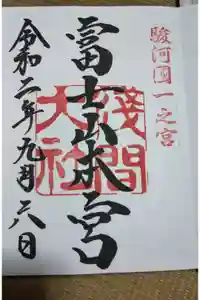 駿河國一之宮
富士山本宮
淺間大社
令和二年九月六日